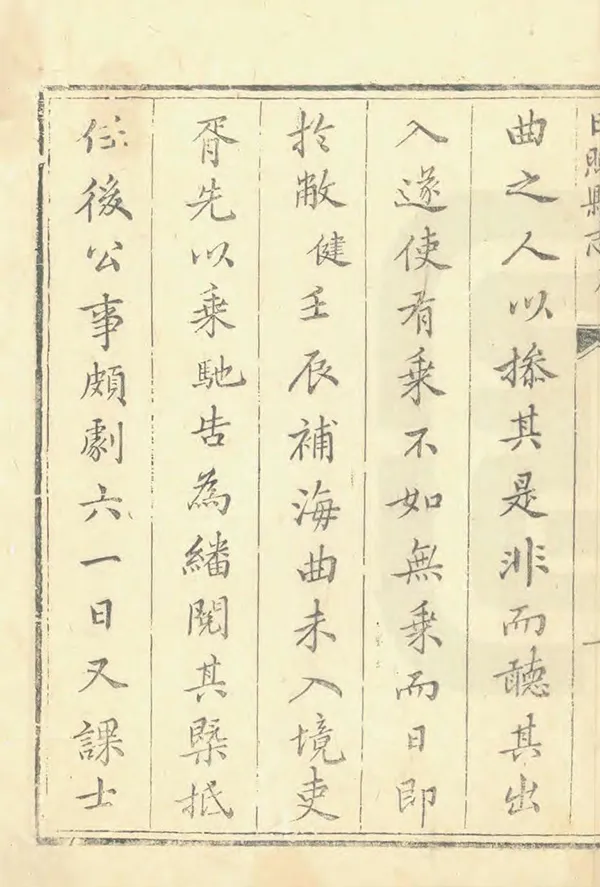 日照縣志
曲之人以摻其是非而聽其出
入遂使有乗不如無乗而日即
於敝健壬辰補海曲未入境吏
胥先以乗馳告為繙閱其槩抵
任後公事頗劇六一日又課士